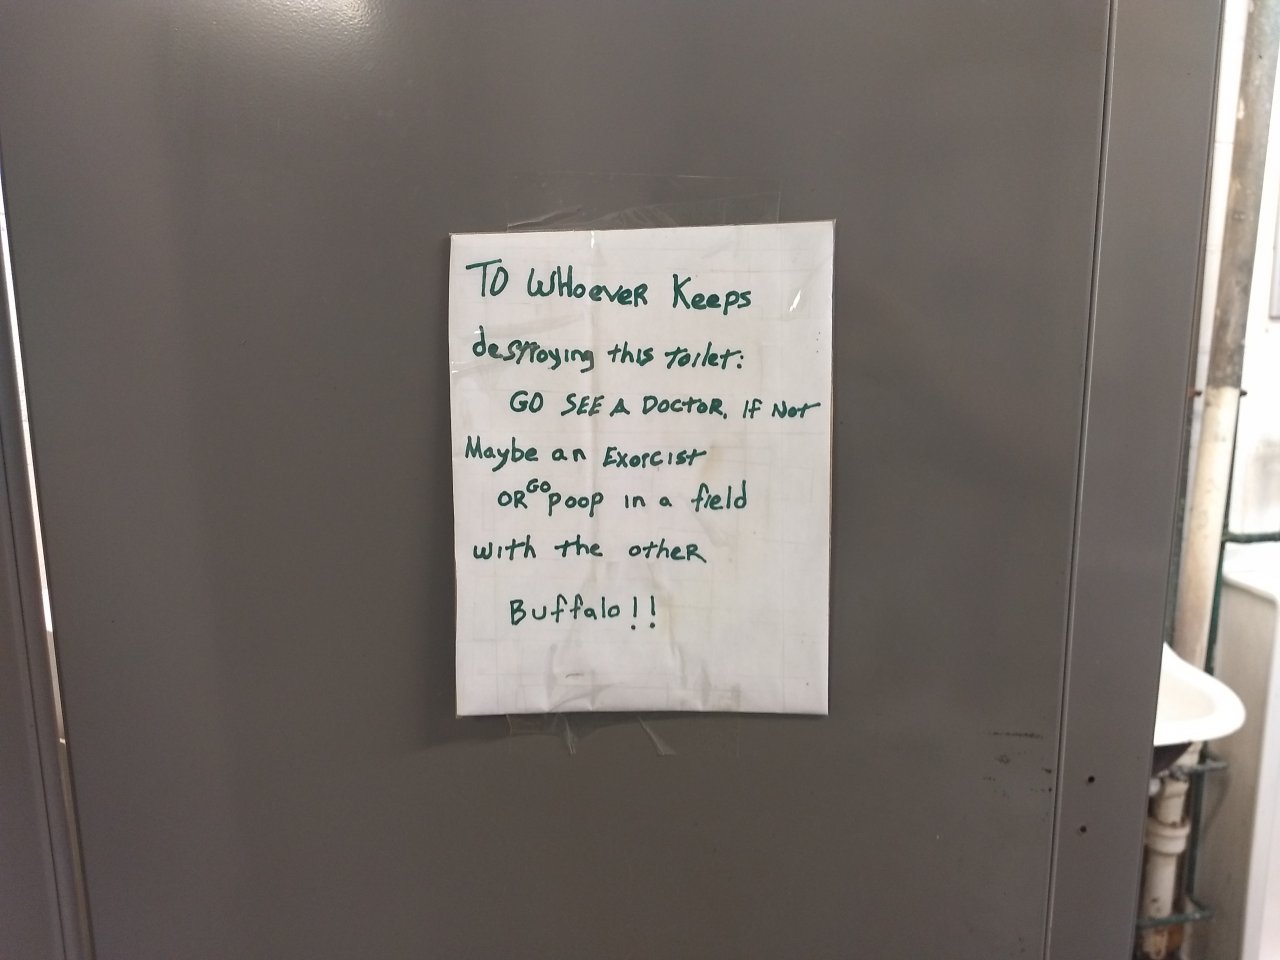 TO WHoever Keeps
destroying this toilet:
GO SEE A DOCTOR, If Not
Maybe an Exorcist
OR GO poop in a field
with the otheR
Buffalo!!